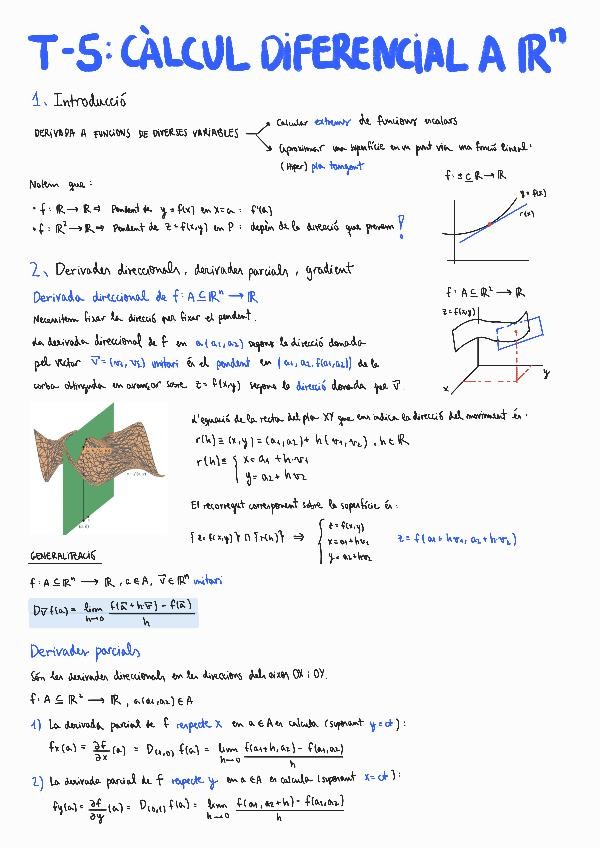 T-5: CÀLCUL DIFERENCIAL A ℝⁿ
1. Introducció
DERIVADA A FUNCIONS DE DIVERSES VARIABLES
Calcular extrems de funcions escalars
Aproximar una superfície en un punt via una funció lineal.
(Hiper) pla tangent
Notem que:
• f: ℝ → ℝ ⇒ Pendent de y = f(x) en x=a : f'(a)
• f: ℝ² → ℝ ⇒ Pendent de z = f(x,y) en P : depèn de la direcció que prenem !
f: I ⊆ ℝ → ℝ
y = f(x)
r(x)
2. Derivades direccionals, derivades parcials, gradient
Derivada direccional de f: A ⊆ ℝⁿ → ℝ
Necessitem fixar la direcció per fixar el pendent.
La derivada direccional de f en a(a₁,a₂) segons la direcció donada
pel vector v⃗ = (v₁, v₂) unitari és el pendent en (a₁,a₂,f(a₁,a₂)) de la
corba obtinguda en avançar sobre z = f(x,y) segons la direcció donada per v⃗
f: A ⊆ ℝ² → ℝ
z = f(x,y)
x
y
L'equació de la recta del pla XY que ens indica la direcció del moviment és:
r(h) ≡ (x,y) = (a₁,a₂) + h(v₁,v₂), h ∈ ℝ
r(h) ≡ { x = a₁ + h·v₁
y = a₂ + h·v₂
El recorregut corresponent sobre la superfície és:
{z = f(x,y)} ∩ {r(h)} ⇒ { z = f(x,y)
x = a₁+hv₁
y = a₂+hv₂
z = f(a₁+hv₁, a₂+hv₂)
GENERALITZACIÓ
f: A ⊆ ℝⁿ → ℝ, a ∈ A, v⃗ ∈ ℝⁿ unitari
D_v⃗ f(a) = lim_{h→0} (f(a⃗+hv⃗) - f(a⃗))/h
Derivades parcials
Són les derivades direccionals en les direccions dels eixos OX i OY.
f: A ⊆ ℝ² → ℝ, a(a₁,a₂) ∈ A
1) La derivada parcial de f respecte x en a ∈ A es calcula (suposant y = ct):
fx(a) = ∂f/∂x (a) = D₍₁,₀₎ f(a) = lim_{h→0} (f(a₁+h,a₂) - f(a₁,a₂))/h
2) La derivada parcial de f respecte y en a ∈ A es calcula (suposant x = ct):
fy(a) = ∂f/∂y (a) = D₍₀,₁₎ f(a) = lim_{h→0} (f(a₁,a₂+h) - f(a₁,a₂))/h